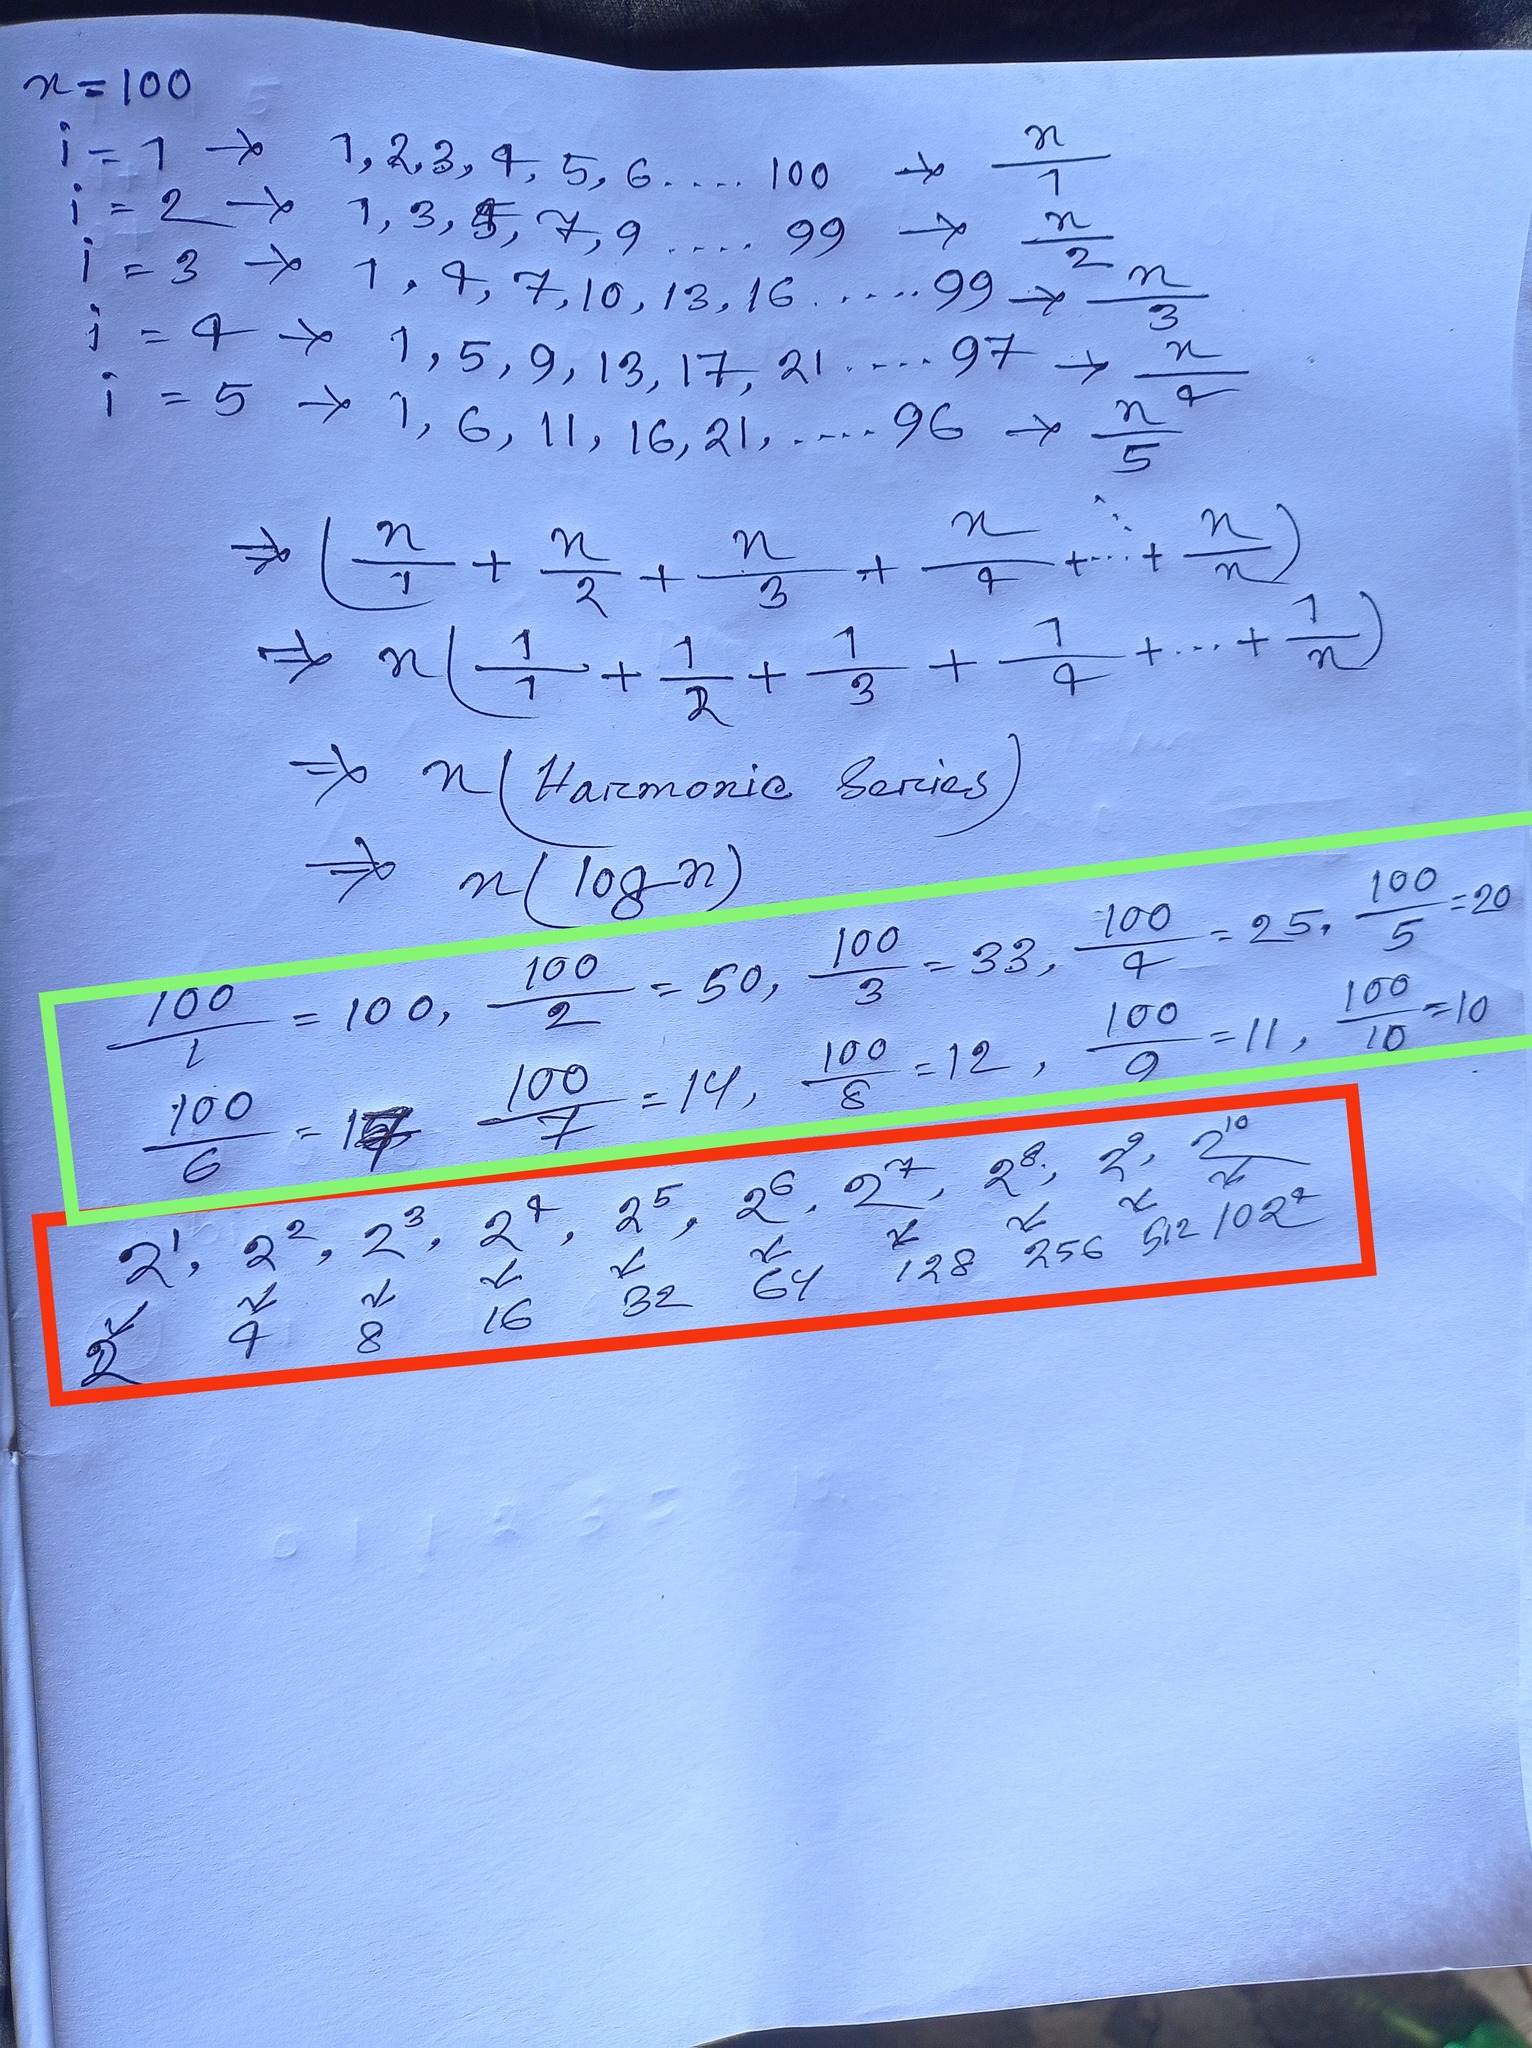 n = 100
i = 1 → 1, 2, 3, 4, 5, 6 .... 100 → n/1
i = 2 → 1, 3, 5, 7, 9 .... 99 → n/2
i = 3 → 1, 4, 7, 10, 13, 16 ..... 99 → n/3
i = 4 → 1, 5, 9, 13, 17, 21 .... 97 → n/4
i = 5 → 1, 6, 11, 16, 21, .... 96 → n/5
⇒ (n/1 + n/2 + n/3 + n/4 + ... + n/n)
⇒ n(1/1 + 1/2 + 1/3 + 1/4 + ... + 1/n)
⇒ n(Harmonic Series)
⇒ n(log n)
100/1 = 100, 100/2 = 50, 100/3 = 33, 100/4 = 25, 100/5 = 20
100/6 = 1 100/7 = 14, 100/8 = 12, 100/9 = 11, 100/10 = 10
2¹, 2², 2³, 2⁴, 2⁵, 2⁶, 2⁷, 2⁸, 2⁹, 2¹⁰
2 4 8 16 32 64 128 256 512 1024